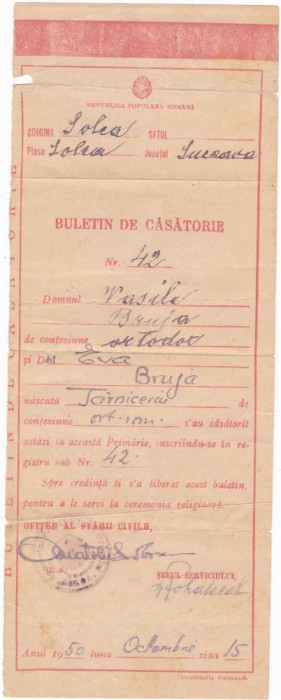 REPUBLICA POPULARĂ ROMÂNĂ
COMUNA Solca SATUL
Plasa Solca Județul Suceava
BULETIN DE CĂSĂTORIE
Nr. 42
Domnul Vasile
Bruja
de confesiune ortodox
și D Eva
Bruja
născută de
confesiune ort. rom. s'au căsătorit
astăzi la această Primărie, înscriindu-se în re-
gistru sub Nr. 42.
Spre credință li s'a liberat acest buletin,
pentru a le servi la ceremonia religioasă.
OFIȚER AL STĂRII CIVILE,
ȘEFUL SERVICIULUI,
Anul 1950 luna Octombrie ziua 15
Imprimeria Națională